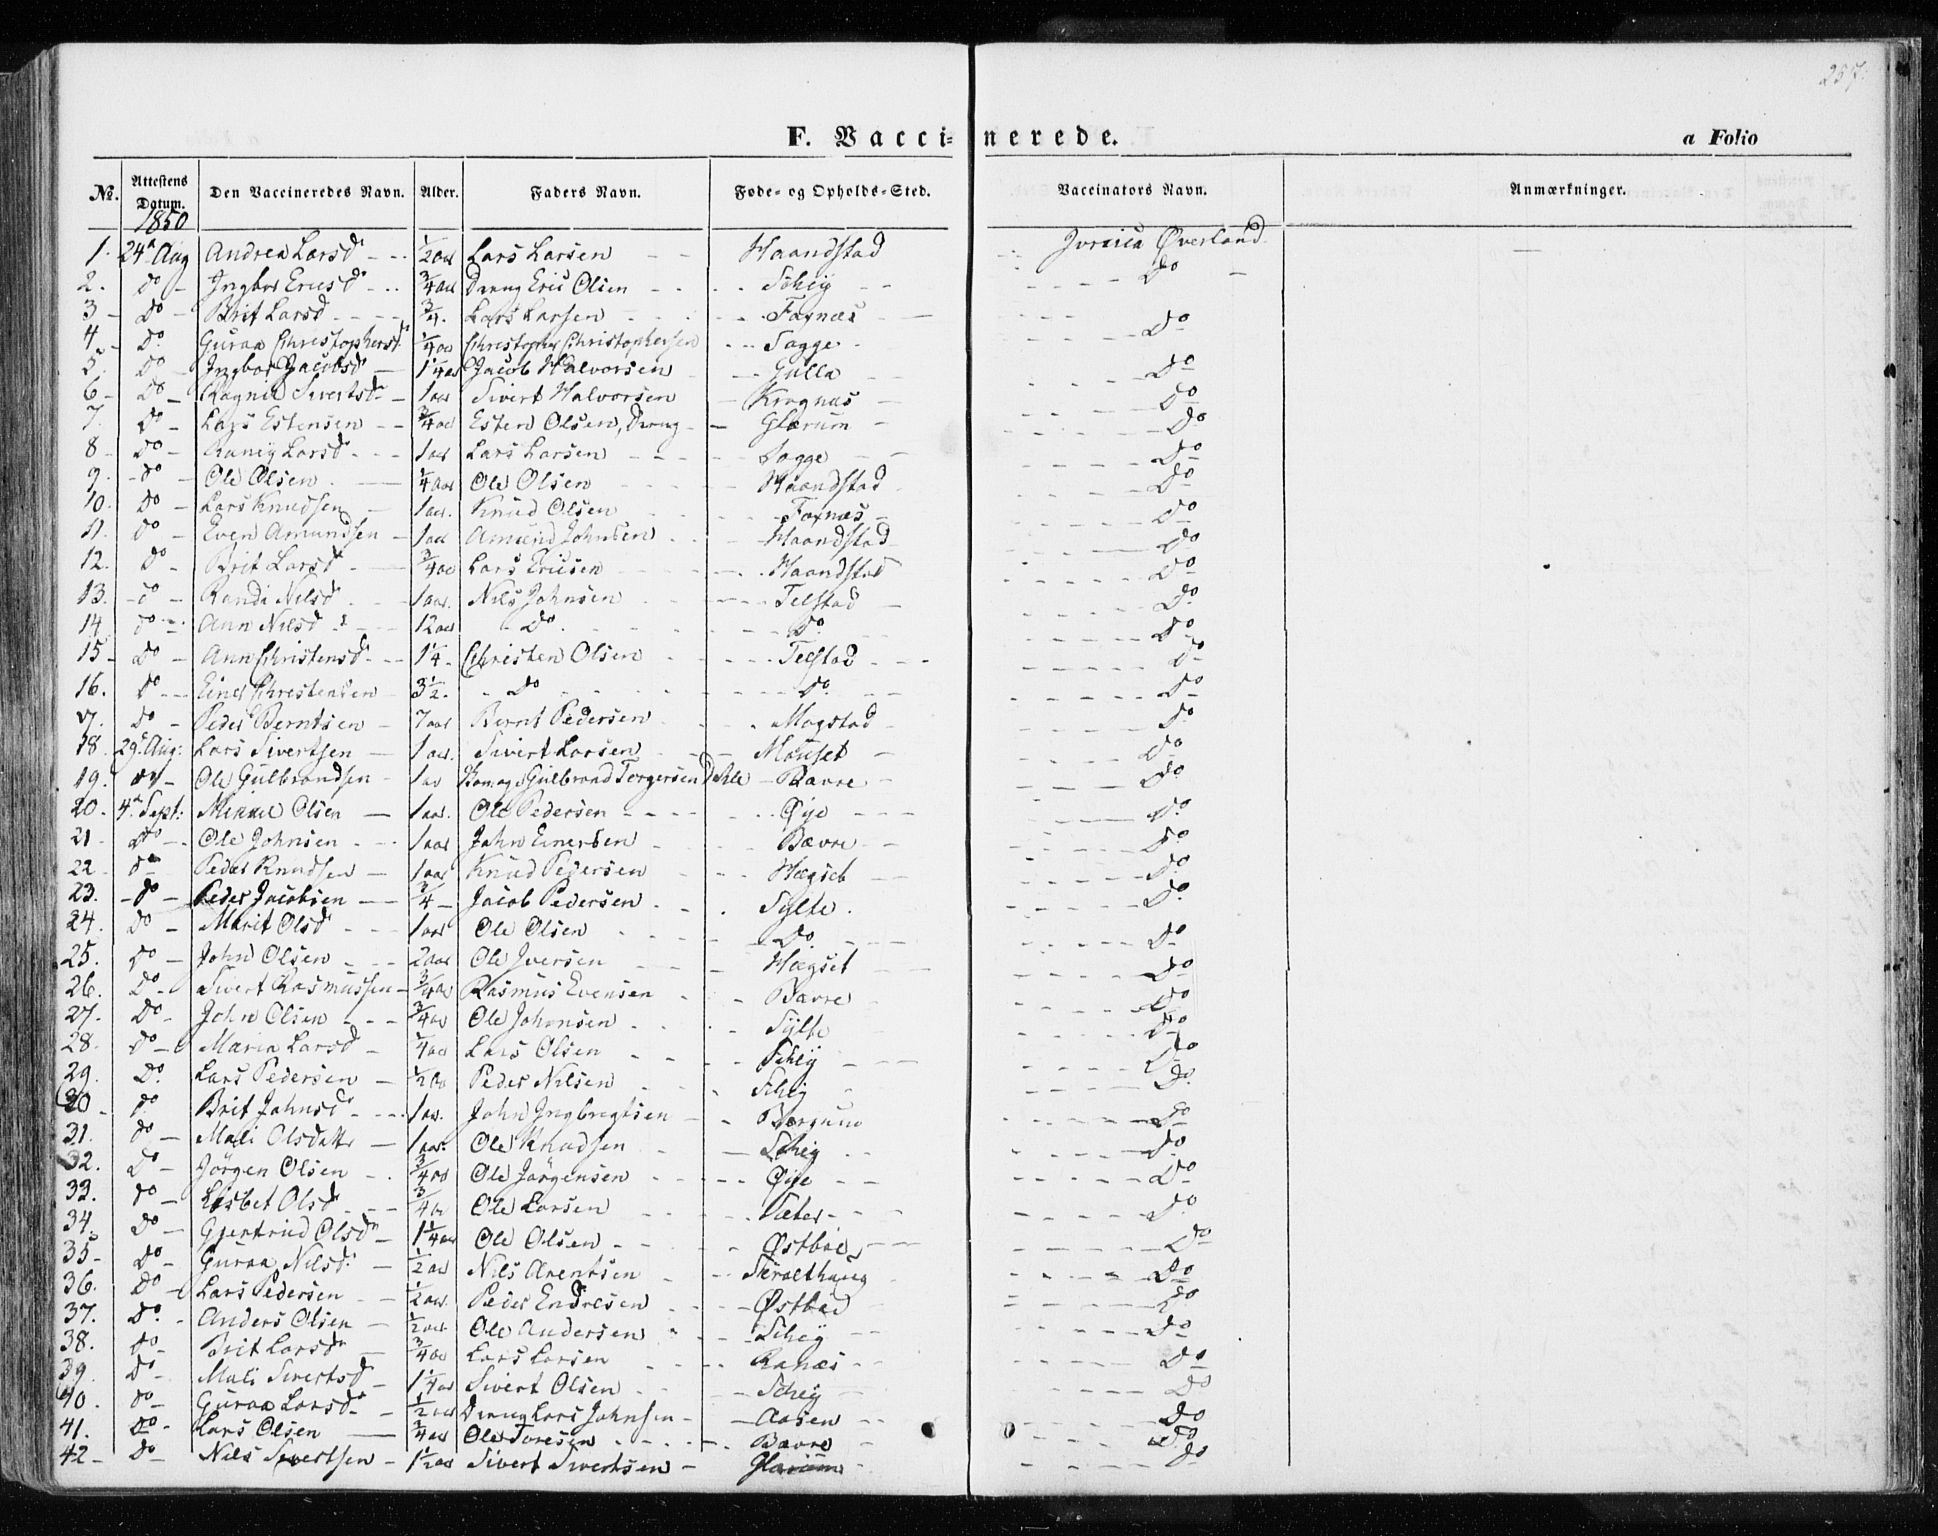 257.
F. Vaccinerede. a Folio
No. Attestens Datum. Den Vaccineredes Navn. Alder. Faders Navn. Føde- og Opholds-Sted. Vaccinators Navn. Anmærkninger.
1850
1. 24de Aug Andrea Larsd - 1/2 aar Lars Larsen Haandstad Øverland
2. Do Ingbor Ericsd 3/4 aar Dreng Eric Olsen Schey Do
3 Do Brit Larsd 3/4. Lars Larsen Foxnæs
4 Do Guraa Christophersd 1/4 aar Christopher Christophersen Sogge Do
5. Do Ingbor Jacobsd 1 1/4 aar Jacob Halvorsen Gulla Do
6 Do Ragnil Sivertsd 1 aar Sivert Halvorsen Krognæs Do
7. Do Lars Estensen 3/4 aar Esten Olsen, Dreng Glærum Do
8 Do Raniy Larsd 1 aar Lars Larsen Sogge Do
9. Do Ole Olsen 1/4 aar Ole Olsen Haandstad Do
10. Do Lars Knudsen 1 aar. Knud Olsen Foxnæs Do
11. Do Even Amundsen 1 aar Amund Johnsen Haandstad Do
12. Do Brit Larsd 3/4 aar Lars Ericsen Haandstad Do
13. Do Randi Nilsd 1 aar. Nils Johnsen Telstad Do
14 Do Ann Nilsd 12 aar Do Do Do
15 Do Ann Christensd 1 1/4 Christen Olsen Telstad Do
16. Do Einer Christensen 3 1/2. Do Do Do
17. Do Peder Berntsen 7 aar Bernt Pedersen Mogstad Do
18. 29de Aug: Lars Sivertsen 1 aar. Sivert Larsen Mouset Do
19. Do Ole Gulbrandsen 1 aar Gulbrand Torgersen Bævre Do
20. 4de Sept: Mikkel Olsen 1 aar. Ole Pedersen Øye Do
21 Do Ole Johnsen 1 aar John Einersen Bævre Do
22 Do Peder Knudsen 1 aar Knud Pedersen Hægset Do
23. Do Peder Jacobsen 3/4 Jacob Pedersen Sylte. Do
24. Do Marit Olsd 1 aar Ole Olsen Do Do
25. Do John Olsen 2 aar Ole Iversen Hægset Do
26. Do Sivert Rasmussen 3/4 aar Rasmus Evensen Bævre Do
27. Do John Olsen 3/4 aar Ole Johansen Sylte Do
28. Do Maria Larsd 1/4 aar Lars Olsen Schey Do
29. Do Lars Pedersen 1/2 aar Peder Nilsen Schey Do
30 Do Brit Johnsd 1 aar. John Ingbregtsen Do
31. Do Mali Olsdatter 1 aar. Ole Knudsen Schey Do
32. Do Jørgen Olsen 3/4 aar Ole Jørgensen Øye Do
33. Do Lisbet Olsd 3/4 aar Ole Larsen Sæter Do
34. Do Gjertrud Olsd 1 1/4 aar Ole Olsen Østbøe Do
35 Do Guraa Nilsd 1/2 aar Nils Arentsen Skralthaug Do
36. Do Lars Pedersen 1/2 aar. Peder Endresen Østbøe Do
37. Do Anders Olsen 1/2 aar Ole Andersen Schey Do
38. Do Brit Larsd 3/4 aar Lars Larsen Ranæs Do
39. Do Mali Sivertsd 1 1/4 aar Sivert Olsen Schey Do
40. Do Guraa Larsd 1/2 aar Dreng Lars Johnsen Aasen Do
41. Do Lars Olsen 3/4 aar Ole Toresen Bævre Do
42 Do Nils Sivertsen 1 1/2 aar Sivert Sivertsen Glærum Do